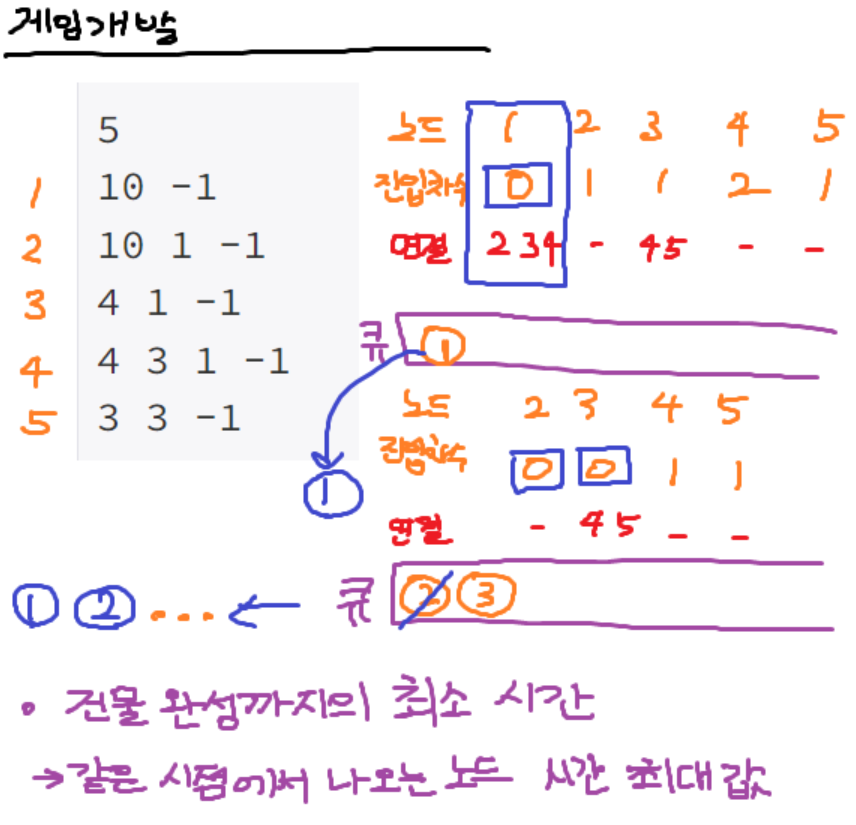 게임개발
5
1 10 -1
2 10 1 -1
3 4 1 -1
4 4 3 1 -1
5 3 3 -1
노드 1 2 3 4 5
진입차수 0 1 1 2 1
연결 2 3 4 - 4 5 - -
큐 1
노드 2 3 4 5
진입차수 0 0 1 1
연결 - 4 5 - -
1
큐 2 3
1 2 ... ←
• 건물 완성까지의 최소 시간
→ 같은 시점에서 나오는 노드 시간 최대값